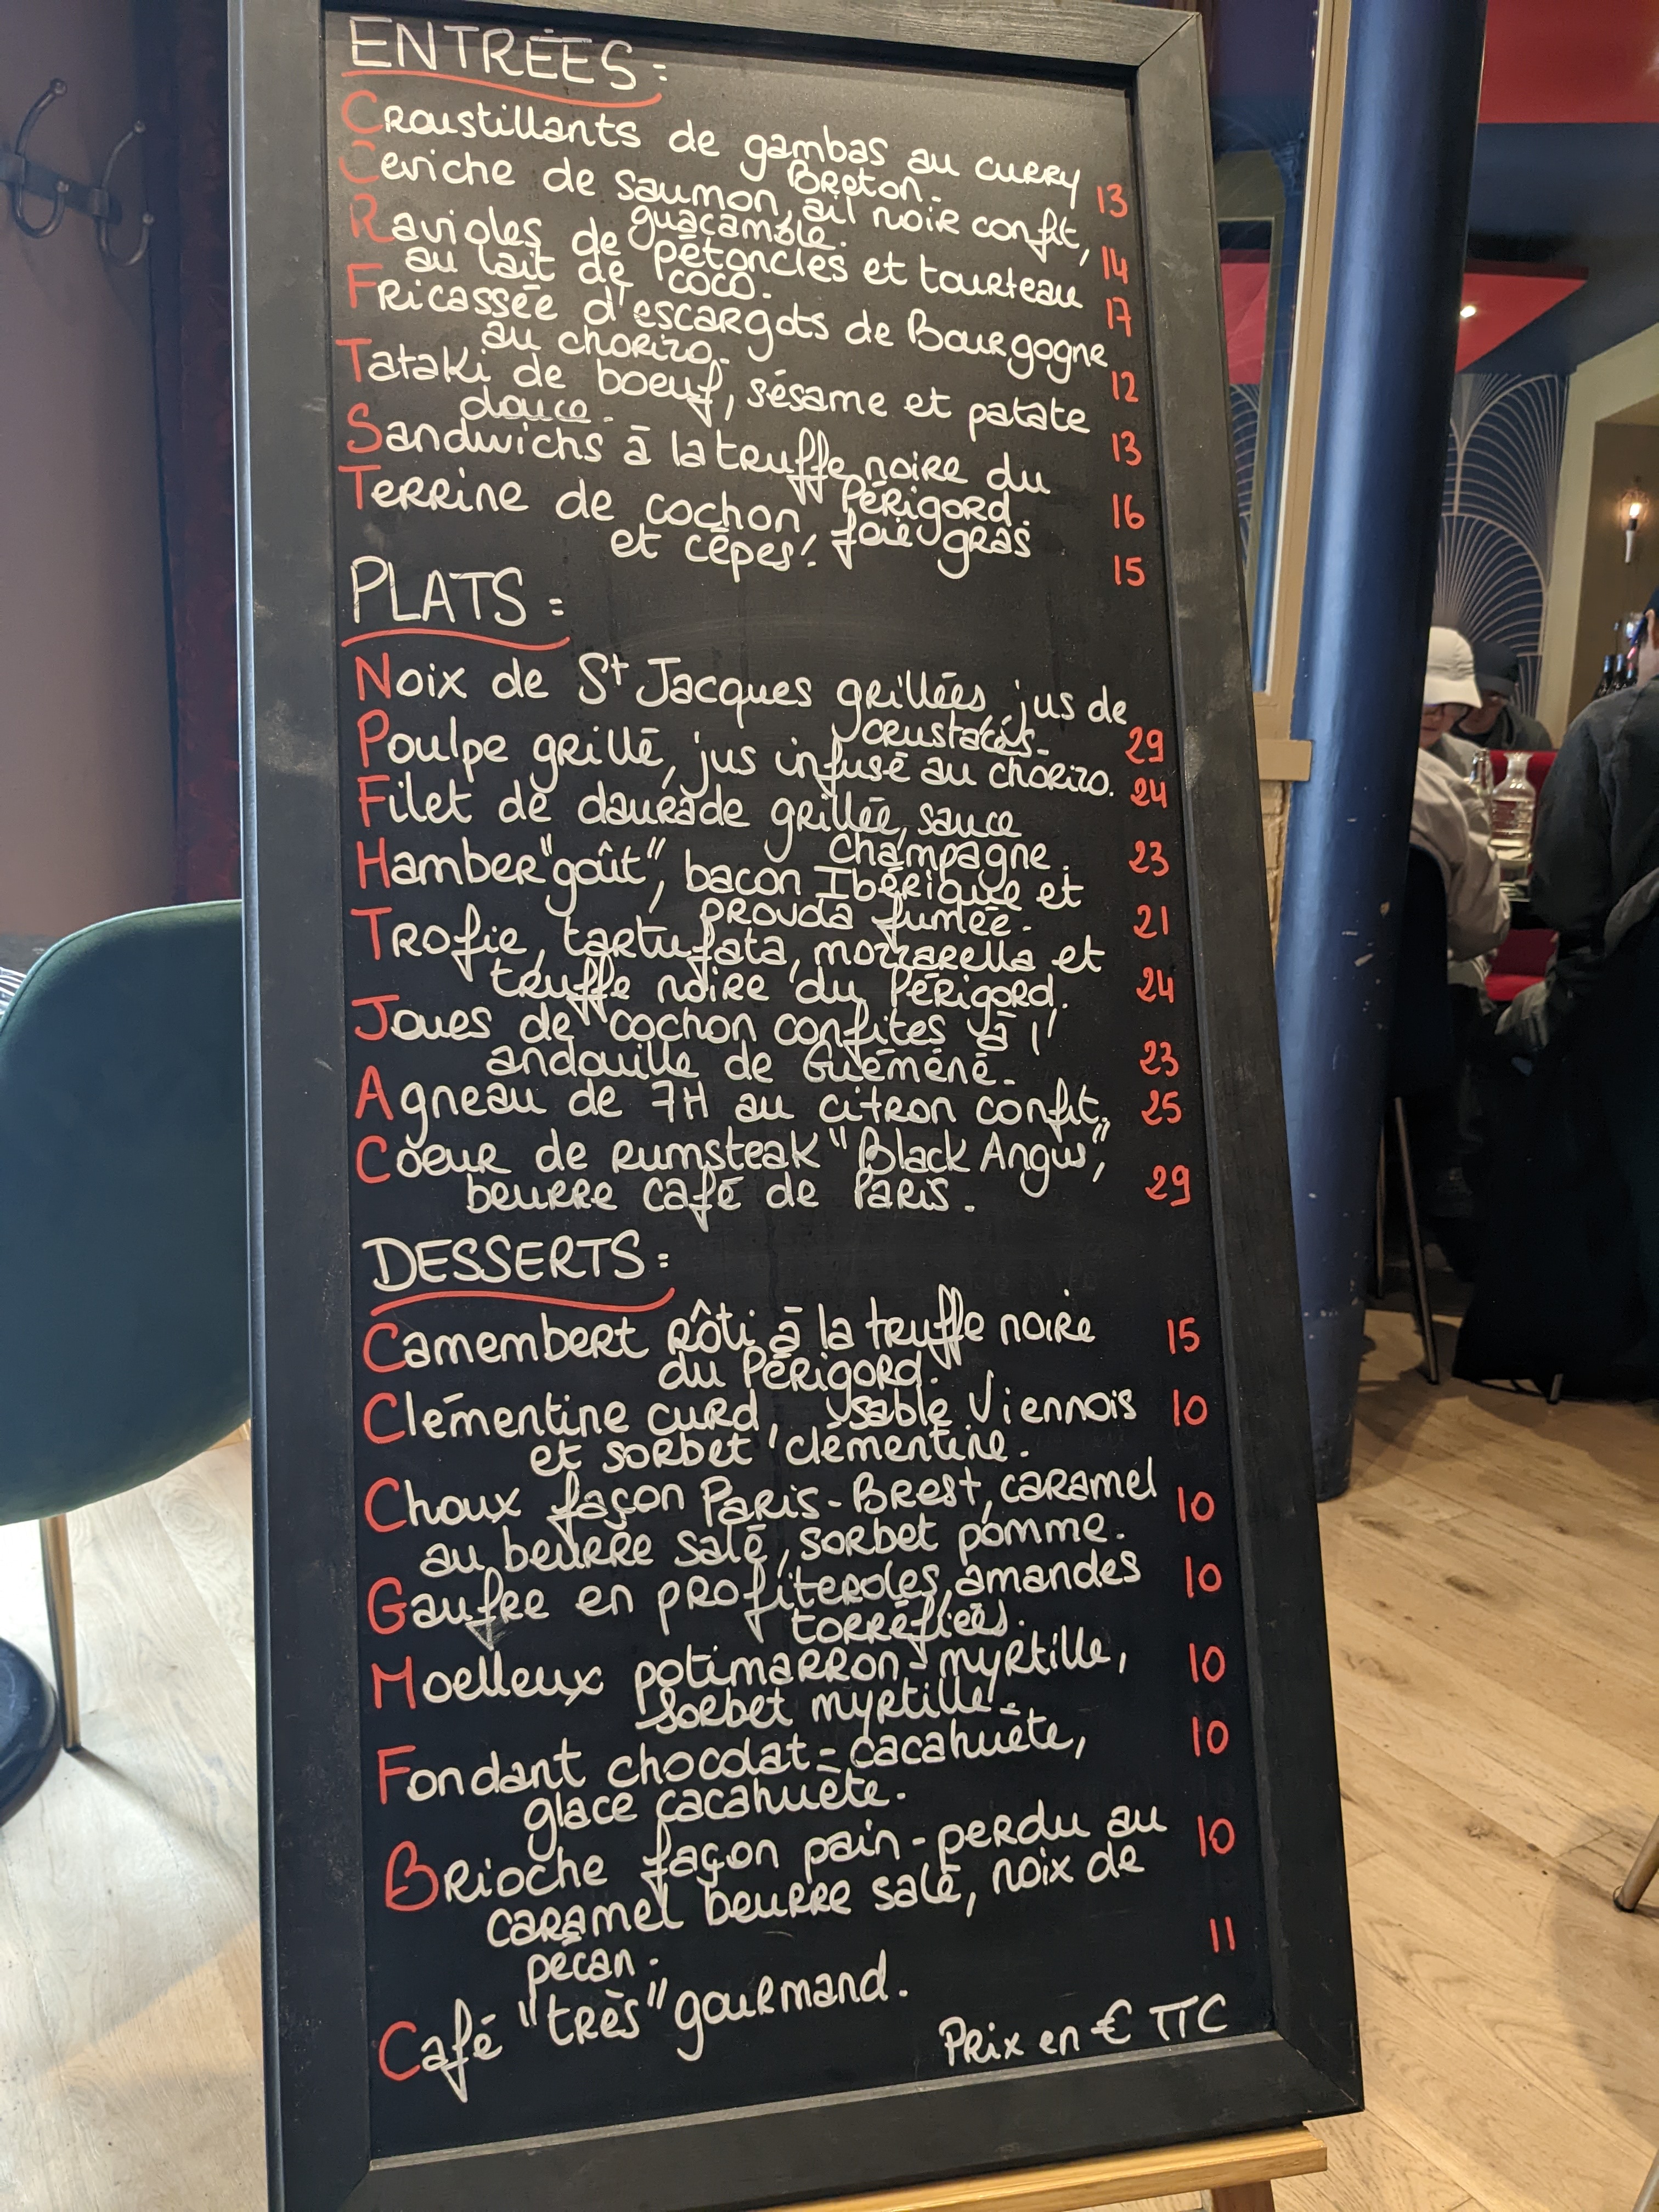 ENTRÉES:
Croustillants de gambas au curry
Breton. 13
Ceviche de saumon, ail noir confit,
guacamole. 14
Ravioles de pétoncles et tourteau
au lait de coco. 17
Fricassée d'escargots de Bourgogne
au chorizo. 12
Tataki de boeuf, sésame et patate
douce. 13
Sandwichs à la truffe noire du
Périgord. 16
Terrine de cochon foie gras
et cêpes! 15
PLATS:
Noix de St Jacques grillées, jus de
crustacés. 29
Poulpe grillé, jus infusé au chorizo. 24
Filet de daurade grillée, sauce
champagne. 23
Hamber"goût", bacon Ibérique et
provola fumée. 21
Trofie, tartufata, mozzarella et
truffe noire du Périgord. 24
Joues de cochon confites à l'
andouille de Guéméné. 23
Agneau de 7H au citron confit. 25
Coeur de rumsteak "Black Angus",
beurre café de Paris. 29
DESSERTS:
Camembert rôti à la truffe noire 15
du Périgord.
Clémentine curd, sablé Viennois 10
et sorbet clémentine.
Choux façon Paris-Brest, caramel 10
au beurre salé, sorbet pomme.
Gaufre en profiteroles, amandes 10
torréfiées.
Moelleux potimarron-myrtille, 10
sorbet myrtille.
Fondant chocolat-cacahuète, 10
glace cacahuète.
Brioche façon pain-perdu au 10
caramel beurre salé, noix de
pécan.
Café "très" gourmand. 11
Prix en € TTC